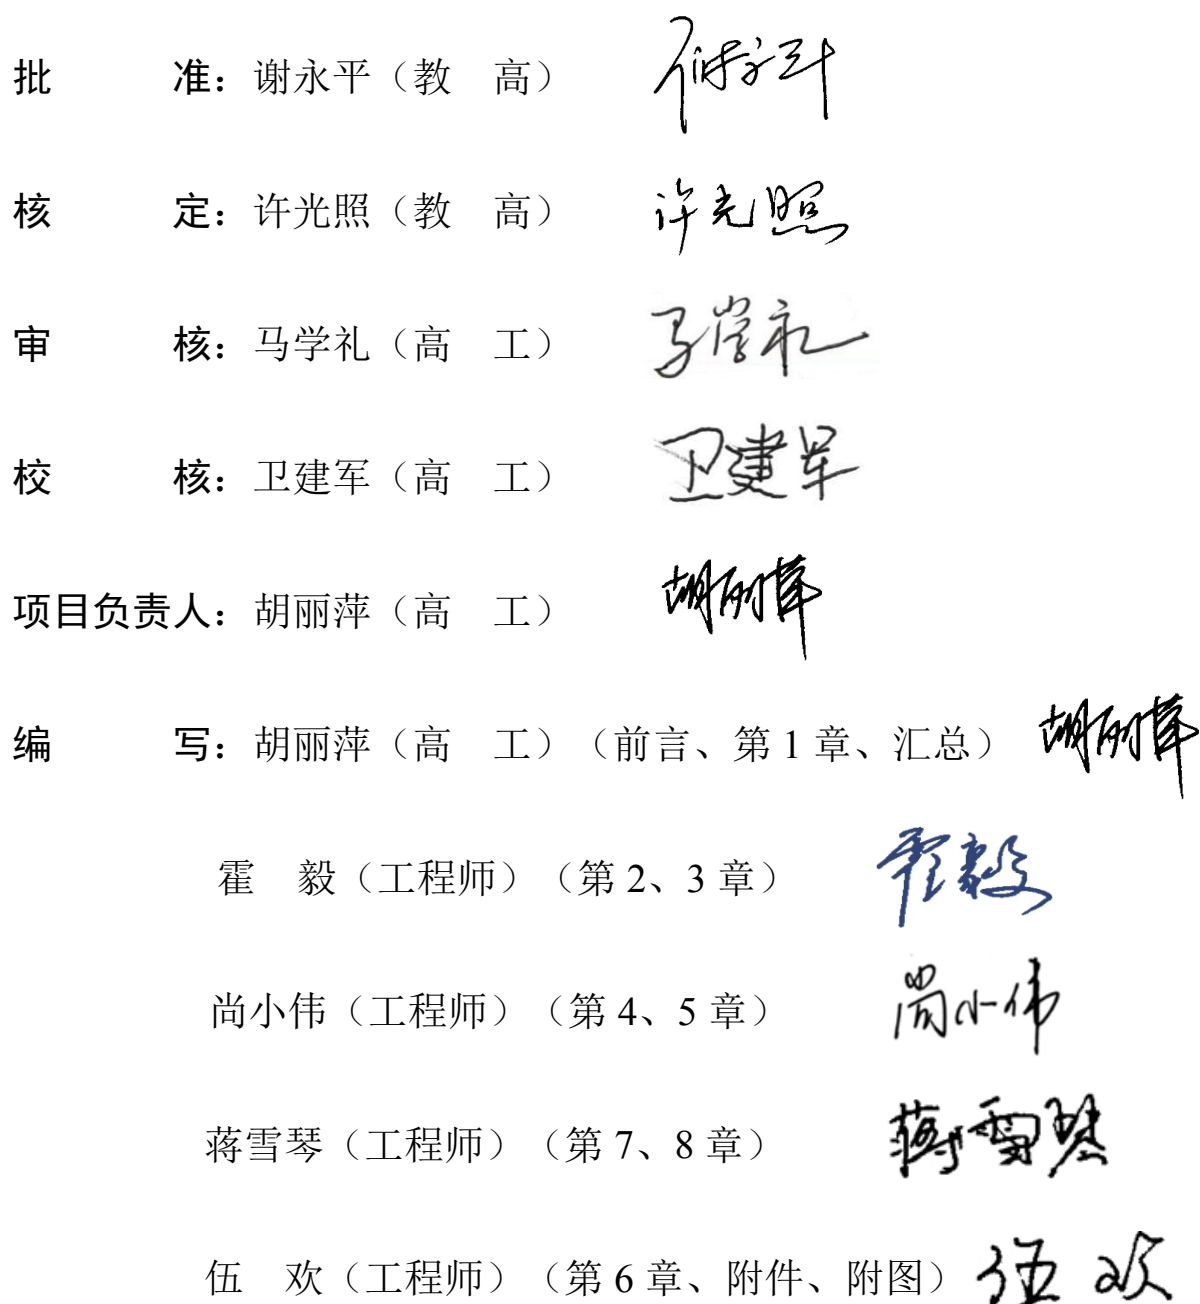 批　　　准：谢永平（教　高）
核　　　定：许光照（教　高） 许光照
审　　　核：马学礼（高　工） 马学礼
校　　　核：卫建军（高　工） 卫建军
项目负责人：胡丽萍（高　工） 胡丽萍
编　　　写：胡丽萍（高　工）（前言、第 1 章、汇总） 胡丽萍
霍　毅（工程师）（第 2、3 章） 霍毅
尚小伟（工程师）（第 4、5 章） 尚小伟
蒋雪琴（工程师）（第 7、8 章） 蒋雪琴
伍　欢（工程师）（第 6 章、附件、附图） 伍欢